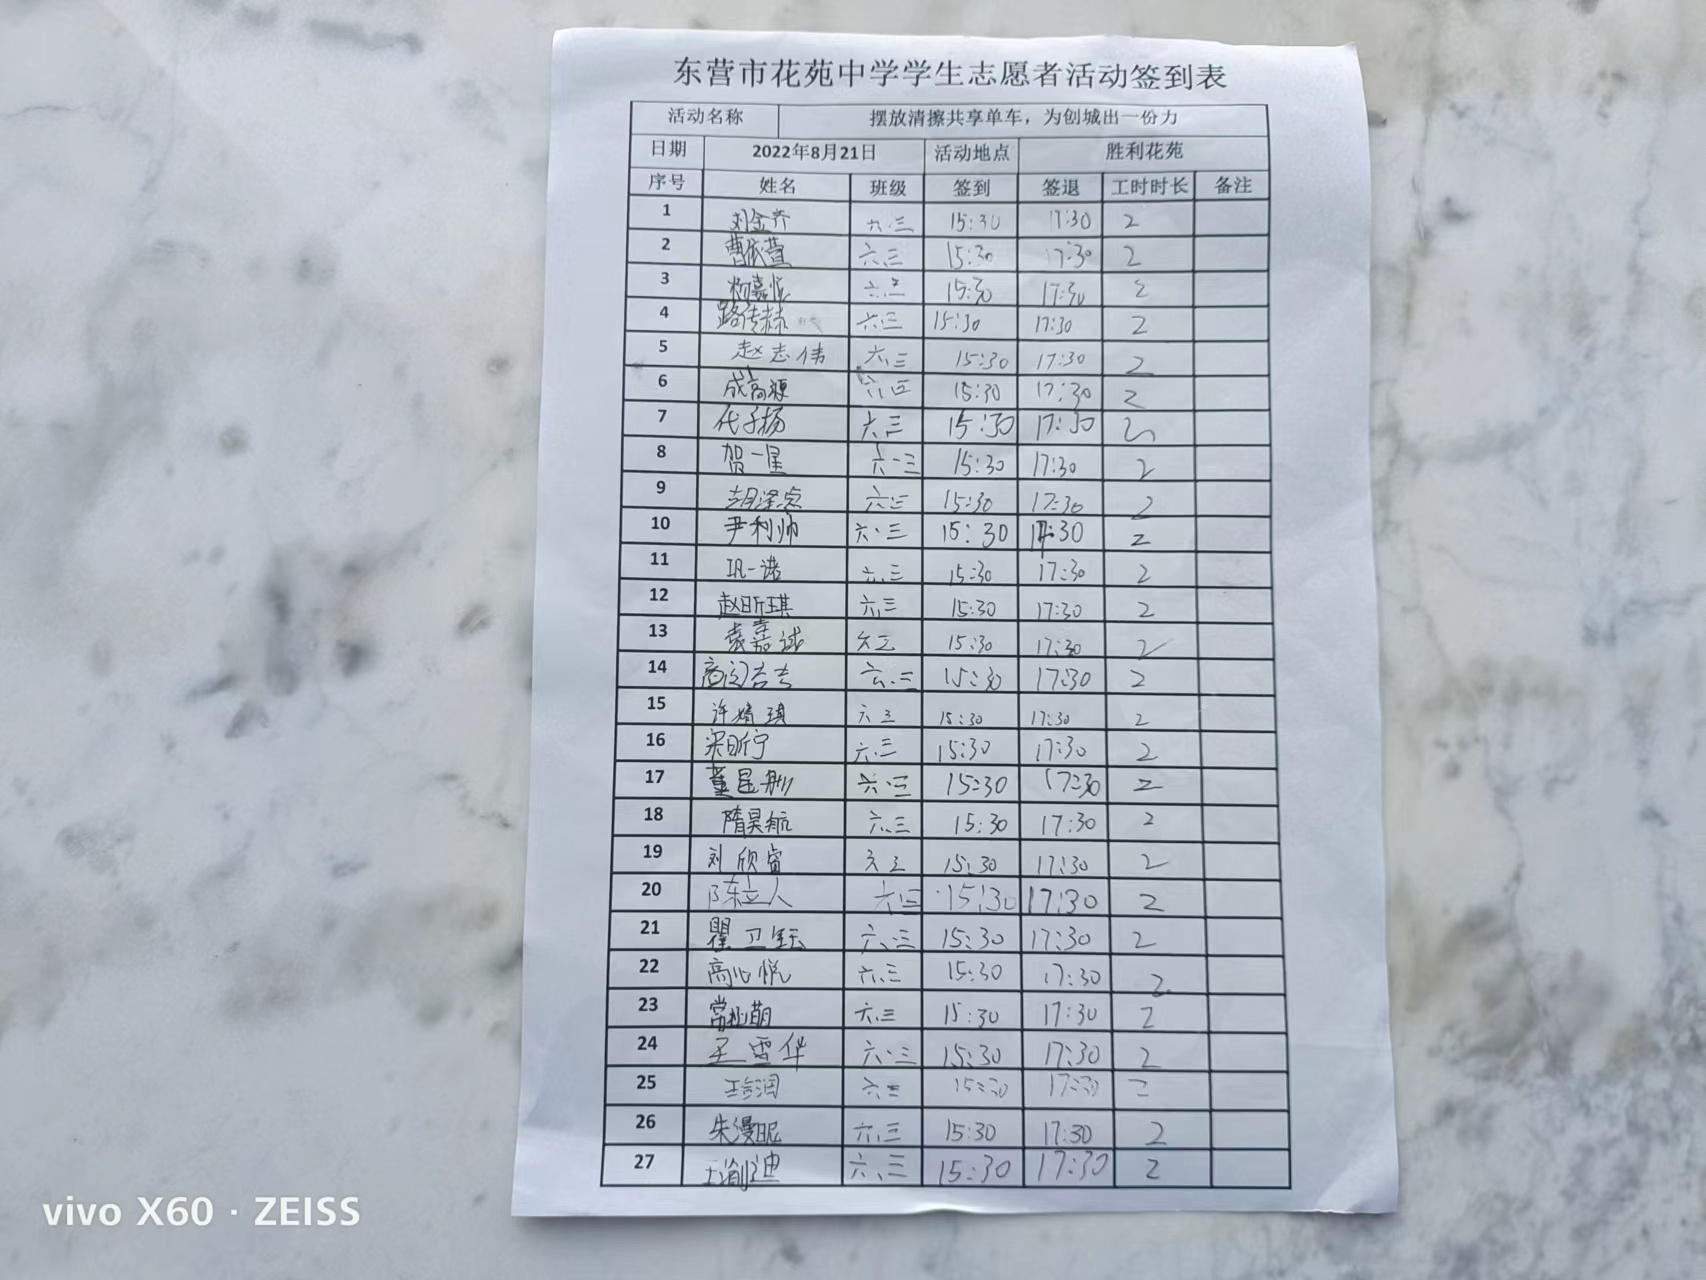 东营市花苑中学学生志愿者活动签到表
活动名称 摆放清擦共享单车，为创城出一份力
日期 2022年8月21日 活动地点 胜利花苑
序号 姓名 班级 签到 签退 工时时长 备注
1 刘金乔 六.三 15:30 17:30 2
2 曹依萱 六.三 15:30 17:30 2
3 杨嘉悦 15:30 17:30 2
4 路传赫 六.三 15:30 17:30 2
5 赵志伟 六.三 15:30 17:30 2
6 成高源 15:30 17:30 2
7 代子扬 六.三 15:30 17:30 2
8 贺一星 六.三 15:30 17:30 2
9 六.三 15:30 17:30 2
10 尹利帅 六.三 15:30 17:30 2
11 巩一诺 六.三 15:30 17:30 2
12 赵昕琪 六.三 15:30 17:30 2
13 袁嘉诚 六三 15:30 17:30 2
14 六.三 15:30 17:30 2
15 许婧琪 六三 15:30 17:30 2
16 梁昕宁 六.三 15:30 17:30 2
17 董昱彤 六.三 15:30 17:30 2
18 隋昊航 六.三 15:30 17:30 2
19 刘欣睿 六三 15:30 17:30 2
20 陈立人 六.三 15:30 17:30 2
21 瞿卫钰 六.三 15:30 17:30 2
22 高心悦 六.三 15:30 17:30 2
23 常灿萌 六.三 15:30 17:30 2
24 王雪华 六.三 15:30 17:30 2
25 六三 15:30 17:30 2
26 朱漫昵 六.三 15:30 17:30 2
27 王渝迪 六.三 15:30 17:30 2
vivo X60 · ZEISS